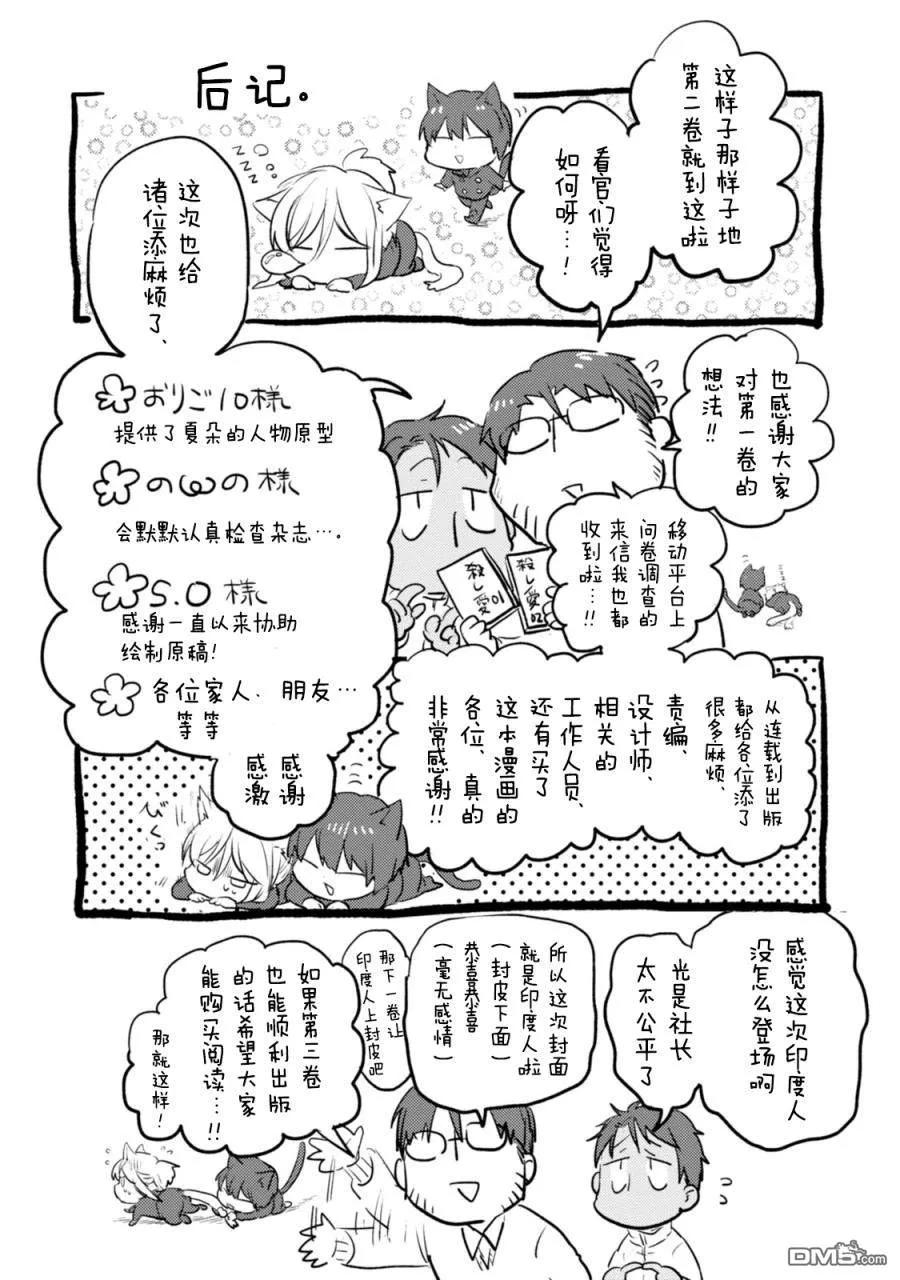 后记。
这样子那样子地
第二卷就到这啦
看官们觉得
如何呀…！
也感谢大家
对第一卷的
想法!!
移动平台上
问卷调查的
来信我也都
收到啦…!!
殺し愛01
殺し愛02
这次也给
诸位添麻烦了、
おりご10様
提供了夏朵的人物原型
のωの様
会默默认真检查杂志…。
S.O様
感谢一直以来协助
绘制原稿!
各位家人、朋友…
等等
感谢
感激
zzzz
从连载到出版
都给各位添了
很多麻烦、
责编、
设计师、
相关的
工作人员、
还有买了
这本漫画的
各位、真的
非常感谢!!
びくっ
感觉这次印度人
没怎么登场啊
光是社长
太不公平了
所以这次封面
就是印度人啦
(封皮下面)
恭喜恭喜
(毫无感情)
那下一卷让
印度人上封皮吧
如果第三卷
也能顺利出版
的话希望大家
能购买阅读…!!
那就这样!
DM5.com